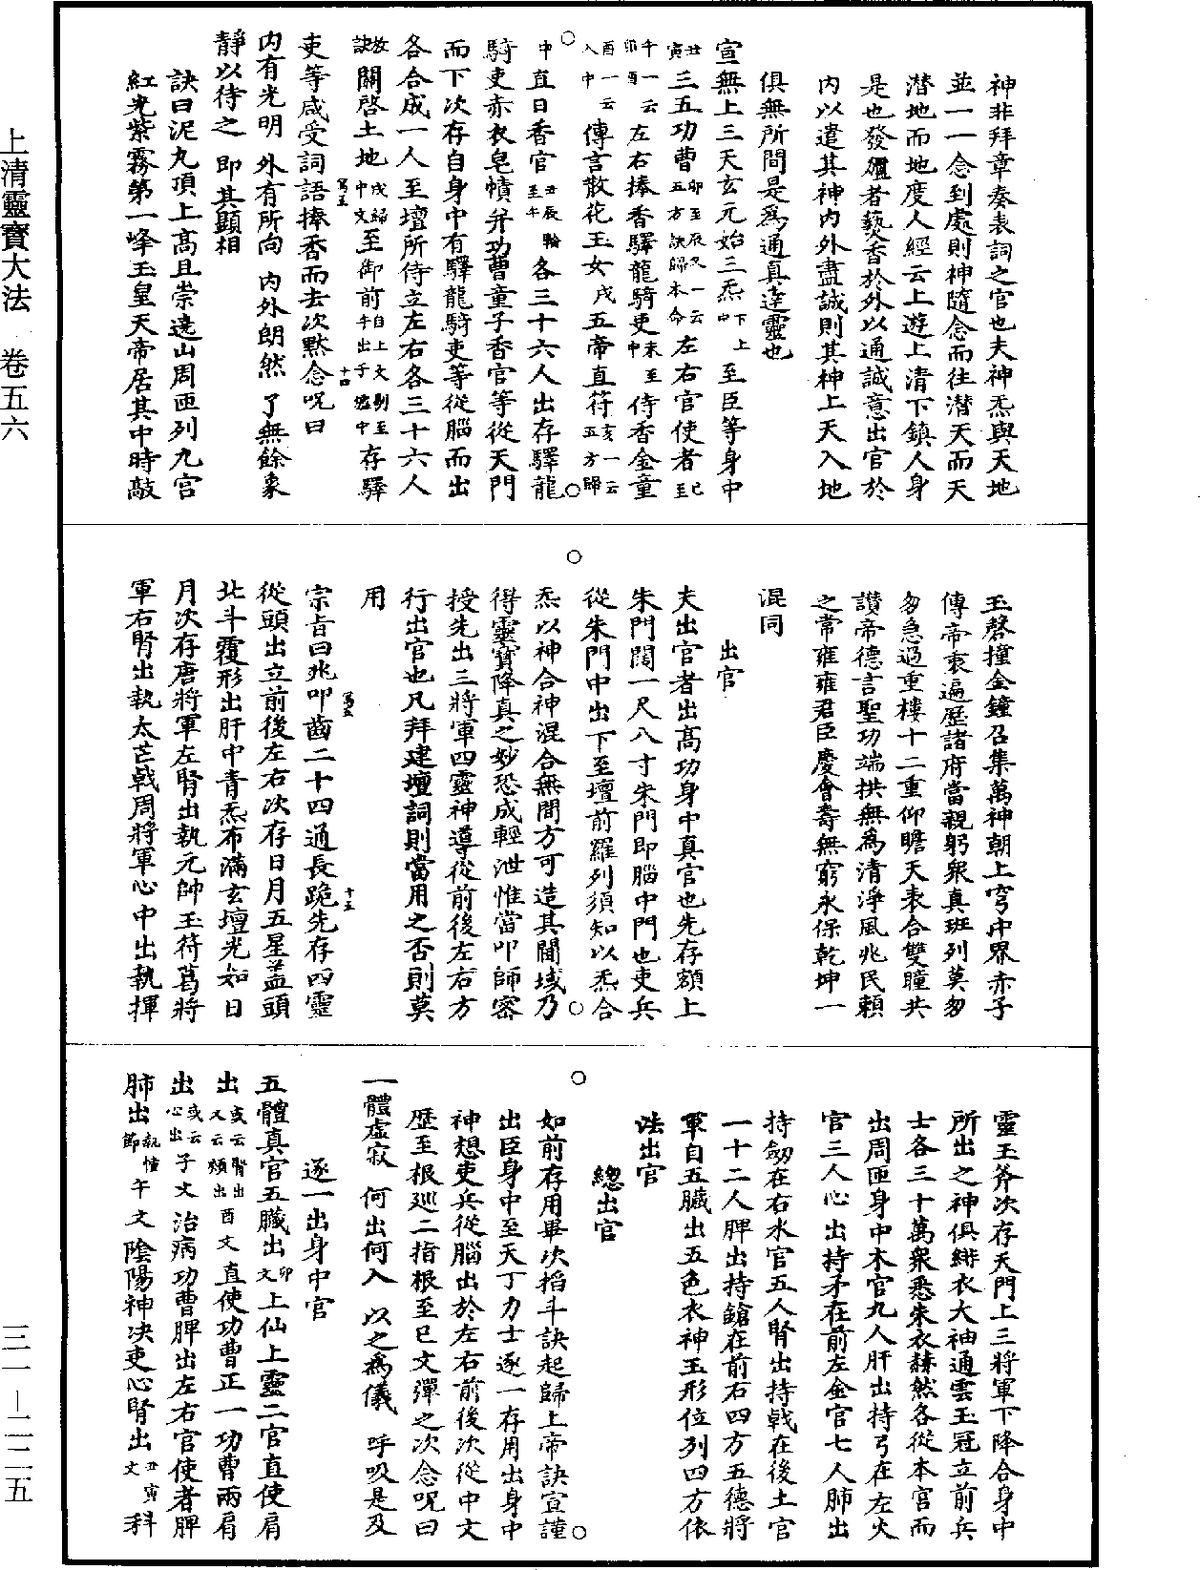 上清靈寶大法 卷五六
神非拜章奏表詞之官也夫神炁與天地
並一一念到處則神隨念而往潜天而天
潜地而地度人經云上遊上清下鎮人身
是也發爐者爇香於外以通誠意出官於
内以遣其神内外盡誠則其神上天入地
俱無所間是爲通真達靈也
宣無上三天玄元始三炁下上中至臣等身中
丑寅三五功曹卯至辰又一云五方訣歸本命左右官使者巳至
午一云卯酉左右捧香驛龍騎吏未至申侍香金童
酉一云入中傳言散花玉女戌五帝直符亥一云五方歸
中直日香官丑辰輪至午各三十六人出存驛龍
騎吏赤衣皂幘弁功曹童子香官等從天門
而下次存自身中有驛龍騎吏等從腦而出
各合成一人至壇所侍立左右各三十六人
放訣關啓土地戌歸中文至御前自上文剔至午出子爐中存驛
吏等咸受詞語捧香而去次黙念呪曰
内有光明 外有所向 内外朗然 了無餘象
靜以待之 即其顯相
訣曰泥丸頂上高且崇遶山周匝列九宮
紅光紫霧第一峰玉皇天帝居其中時敲
玉磬撞金鐘召集萬神朝上穹中界赤子
傳帝衷遍歷諸府當親躬衆真班列莫匆
匆急過重樓十二重仰瞻天表合雙瞳共
讚帝德言聖功端拱無爲清淨風兆民賴
之常雍雍君臣慶會壽無窮永保乾坤一
混同
出官
夫出官者出高功身中真官也先存額上
朱門闊一尺八寸朱門即腦中門也吏兵
從朱門中出下至壇前羅列須知以炁合
炁以神合神混合無間方可造其閫域乃
得靈寶降真之妙恐成輕泄惟當叩師密
授先出三將軍四靈神導從前後左右方
行出官也凡拜建壇詞則當用之否則莫
用
宗旨曰兆叩齒二十四通長跪先存四靈
從頭出立前後左右次存日月五星蓋頭
北斗覆形出肝中青炁布滿玄壇光如日
月次存唐將軍左腎出執元帥玉符葛將
軍右腎出執太芒戟周將軍心中出執揮
靈玉斧次存天門上三將軍下降合身中
所出之神俱緋衣大神通雲玉冠立前兵
士各三十萬衆悉朱衣赫然各從本官而
出周匝身中木官九人肝出持弓在左火
官三人心出持矛在前左金官七人肺出
持劒在右水官五人腎出持戟在後土官
一十二人脾出持鎗在前右四方五德將
軍自五臟出五色衣神玉形位列四方依
法出官
總出官
如前存用畢次掐斗訣起歸上帝訣宣謹
出臣身中至天丁力士逐一存用出身中
神想吏兵從腦出於左右前後次從中文
歷至根巡二指根至巳文彈之次念呪曰
一體虛寂 何出何入 以之爲儀 呼吸是及
逐一出身中官
五體真官五臟出卯文上仙上靈二官直使肩
出或云腎出又云頰出酉文直使功曹正一功曹兩肩
出或云心出子文治病功曹脾出左右官使者脾
肺出執幢節午文陰陽神決吏心腎出丑寅文科
三一－二二五